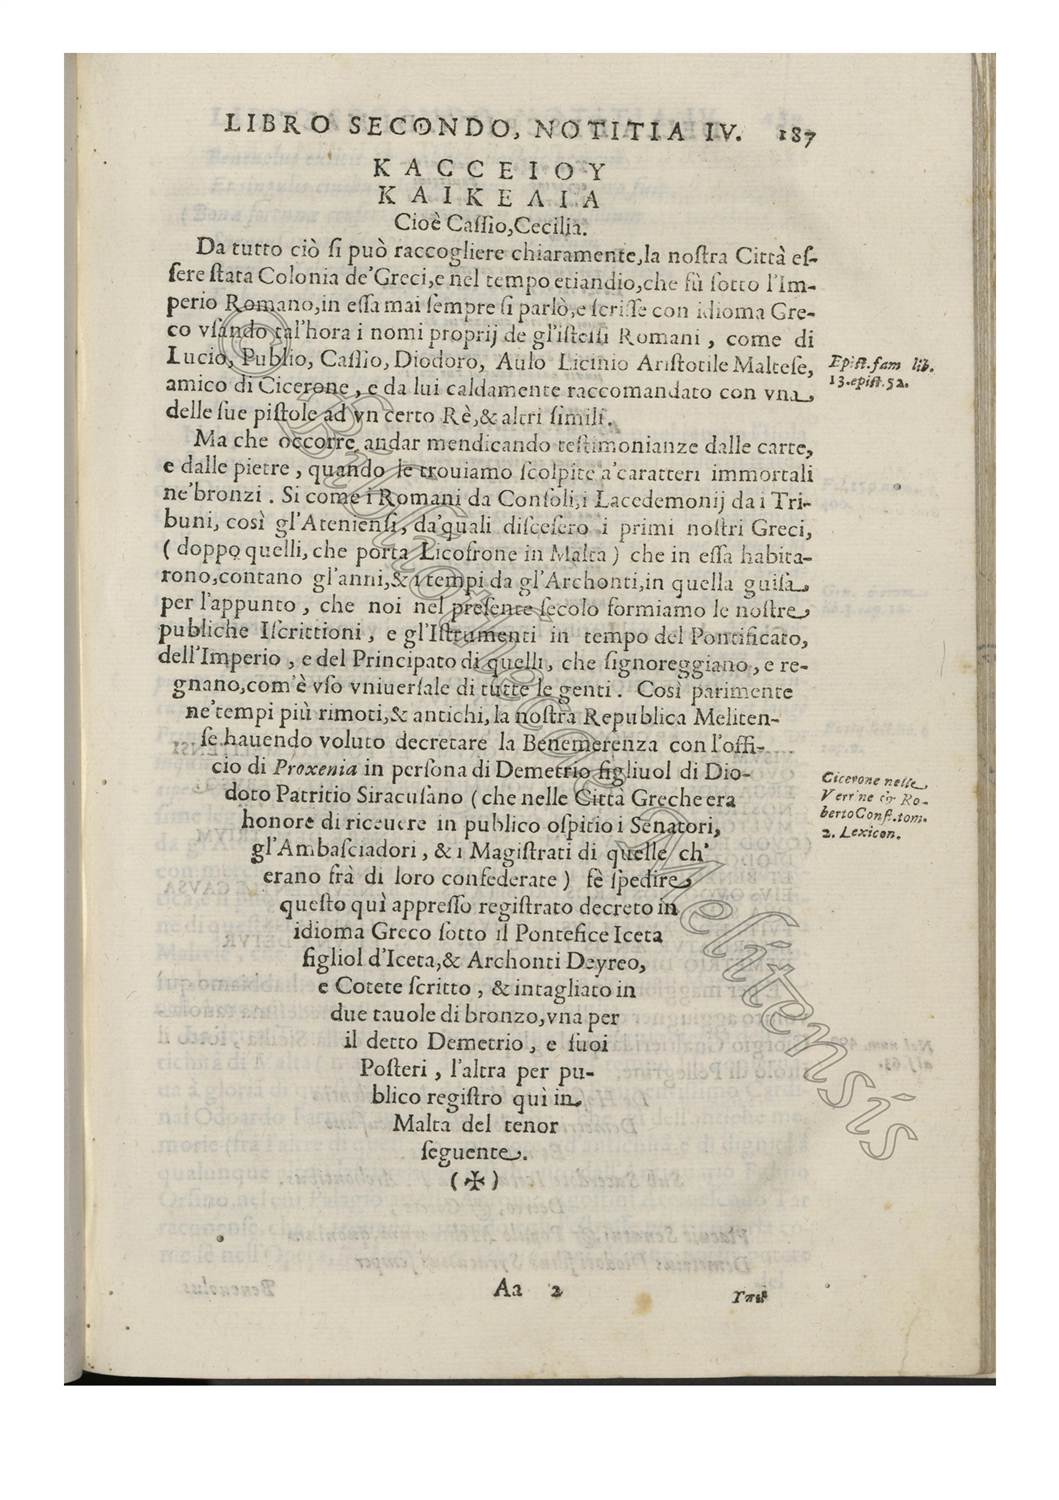 LIBRO SECONDO, NOTITIA IV. 187
ΚΑϹϹΕΙΟΥ
ΚΑΙΚΕΛΙΑ
Cioè Caſſio,Cecilia.
Da tutto ciò ſi può raccogliere chiaramente,la noſtra Città eſ-
ſere ſtata Colonia de'Greci,e nel tempo etiandio,che fù ſotto l'Im-
perio Romano,in eſſa mai ſempre ſi parlò,e ſcriſſe con idioma Gre-
co vſando tal'hora i nomi proprij de gl'iſteſſi Romani, come di
Lucio, Publio, Caſſio, Diodoro, Aulo Licinio Ariſtotile Malteſe,
amico di Cicerone, e da lui caldamente raccomandato con vna
delle ſue piſtole ad vn certo Rè,& altri ſimili.
Epiſt.fam lib.
13.epiſt.52.
Ma che occorre andar mendicando teſtimonianze dalle carte,
e dalle pietre, quando le trouiamo ſcolpite a'caratteri immortali
ne'bronzi. Si come i Romani da Conſoli,i Lacedemonij da i Tri-
buni, così gl'Atenienſi, da'quali diſceſero i primi noſtri Greci,
(doppo quelli, che porta Licofrone in Malta) che in eſſa habita-
rono,contano gl'anni,& i tempi da gl'Archonti,in quella guiſa
per l'appunto, che noi nel preſente ſecolo formiamo le noſtre
publiche Iſcrittioni, e gl'Iſtrumenti in tempo del Pontificato,
dell'Imperio, e del Principato di quelli, che ſignoreggiano, e re-
gnano,com'è vſo vniuerſale di tutte le genti. Così parimente
ne'tempi più rimoti,& antichi, la noſtra Republica Meliten-
ſe hauendo voluto decretare la Benemerenza con l'offi-
cio di Proxenia in perſona di Demetrio figliuol di Dio-
doto Patritio Siracuſano (che nelle Città Greche era
honore di riceuere in publico oſpitio i Senatori,
gl'Ambaſciadori, & i Magiſtrati di quelle ch'
erano frà di loro confederate) fè ſpedire
queſto quì appreſſo regiſtrato decreto in
idioma Greco ſotto il Pontefice Iceta
figliol d'Iceta,& Archonti Deyreo,
e Cotete ſcritto, & intagliato in
due tauole di bronzo,vna per
il detto Demetrio, e ſuoi
Poſteri, l'altra per pu-
blico regiſtro quì in
Malta del tenor
ſeguente.
(✠)
Cicerone nelle
Verrine & Ro-
berto Conſt.tom.
2. Lexicon.
Aa 2
© Bibliotheca Melitensis